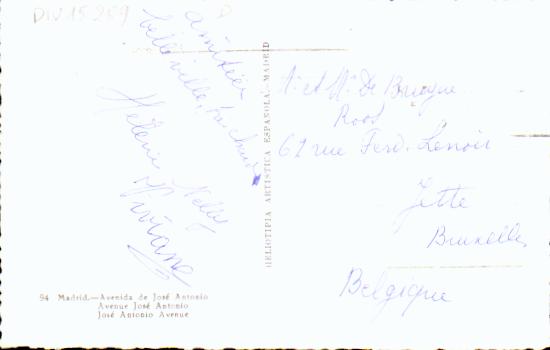 DIV 15 289
amitiés
Hélène Nelly
Viviane
HELIOTIPIA ARTISTICA ESPAÑOLA.-MADRID
Mr et Me De Bruyne
Roos
62 rue Ferd. Lenoir
Jette
Bruxelles
Belgique
94 Madrid.—Avenida de José Antonio
Avenue José Antonio
José Antonio Avenue